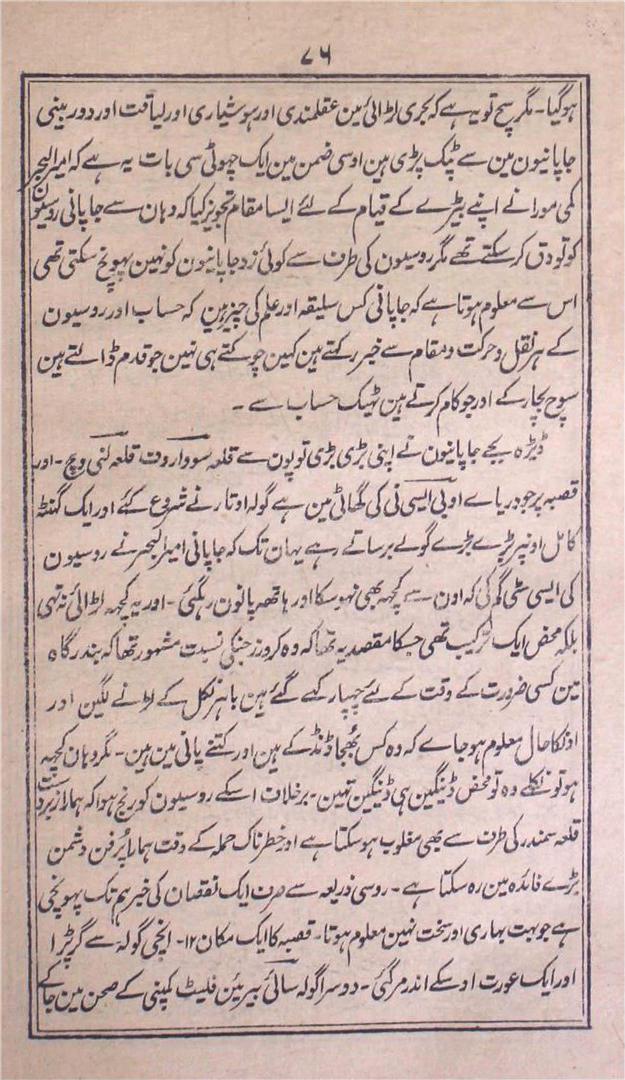 ۷۶
ہوگیا۔ مگر سچ تو یہ ہے کہ بحری لڑائی مین عقلمندی اور ہوشیاری اور لیاقت اور دور بینی
جاپانیون مین سے ٹپک پڑی ہین اوسی ضمن مین ایک چھوٹی سی بات یہ ہے کہ امیر البحر
کمی مورا نے اپنے بیڑے کے قیام کے لئے ایسا مقام تجویز کیا کہ وہان سے جاپانی روسیون
کو تو دق کر سکتے تھے مگر روسیون کی طرف سے کوئی زد جاپانیون کو نہین پہونچ سکتی تھی
اس سے معلوم ہوتا ہے کہ جاپانی کس سلیقہ اور علم کی چیز ہین کہ حساب اور روسیون
کے ہر نقل و حرکت و مقام سے خبر رکھتے ہین کہین چوکتے ہی نہین جو قدم ڈالتے ہین
سوچ بچار کے اور جو کام کرتے ہین ٹھیک حساب سے ۔
ڈیڑہ بجے جاپانیون نے اپنی بڑی بڑی توپون سے قلعہ سوواروف قلعہ لنی وچ ۔ اور
قصبہ پر جو دریاے اوبی ایسی نی کی گھاٹی مین ہے گولہ اوتارنے شروع کئے اور ایک گھنٹہ
کامل اونپر بڑے بڑے گولے برساتے رہے یہان تک کہ جاپانی امیر البحر نے روسیون
کی ایسی سٹی گم کی کہ اون سے کچھہ بھی نہوسکا اور ہاتھہ پانون رہگئی ۔ اور یہ کچھہ لڑائی نہ تہی
بلکہ محض ایک ترکیب تھی جسکا مقصد یہ تھا کہ وہ کروزر جنکی نسبت مشہور تھا کہ بندرگاہ
مین کسی ضرورت کے وقت کے لئے چھپا رکھے گئے ہین باہر نکل کے لڑنے لگین اور
اونکا حال معلوم ہو جاے کہ وہ کس بھیجا ڈنڈ کے ہین اور کتنے پانی مین ہین ۔ مگر وہان کچھہ
ہو تو نکلے وہ تو محض ڈینگین ہی ڈینگین تہین ۔ برخلاف اسکے روسیون کو رنج ہوا کہ ہمارا زبردست
قلعہ سمندر کی طرف سے بھی مغلوب ہوسکتا ہے اور خطرناک حملہ کے وقت ہمارا پُر فن دشمن
بڑے فائدہ مین رہ سکتا ہے ۔ روسی ذریعہ سے صرف ایک نقصان کی خبر ہم تک پہونچی
ہے جو بہت بھاری اور سخت نہین معلوم ہوتا ۔ قصبہ کا ایک مکان ۱۲۔ انچی گولہ سے گر پڑا
اور ایک عورت اوسکے اندر مر گئی ۔ دوسرا گولہ سائی بیرین فلیٹ کمپنی کے صحن مین جاکے